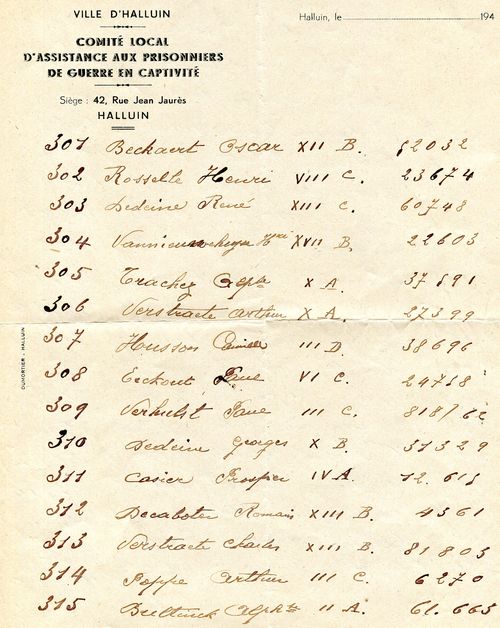 VILLE D'HALLUIN
Halluin, le 194
COMITÉ LOCAL
D'ASSISTANCE AUX PRISONNIERS
DE GUERRE EN CAPTIVITÉ
Siège : 42, Rue Jean Jaurès
HALLUIN
301 Beckaert Oscar XII B. 52032
302 Rosselle Henri VIII C. 23674
303 Dedeine René XIII C. 60748
304 XVII B. 22603
305 Trachez Alph X A. 37591
306 Verstraete Arthur X A. 27399
307 Husson Camille III D. 38696
308 Eeckout VI C. 24758
309 Verhulst III C. 818762
310 Dedeine Georges X B. 31329
311 Casier Prosper IV A. 12.615
312 Decabooter Romain XIII B. 4361
313 Verstraete Charles XIII B. 81803
314 Poppe Arthur III C. 6270
315 II A. 61.663
DUMORTIER - HALLUIN